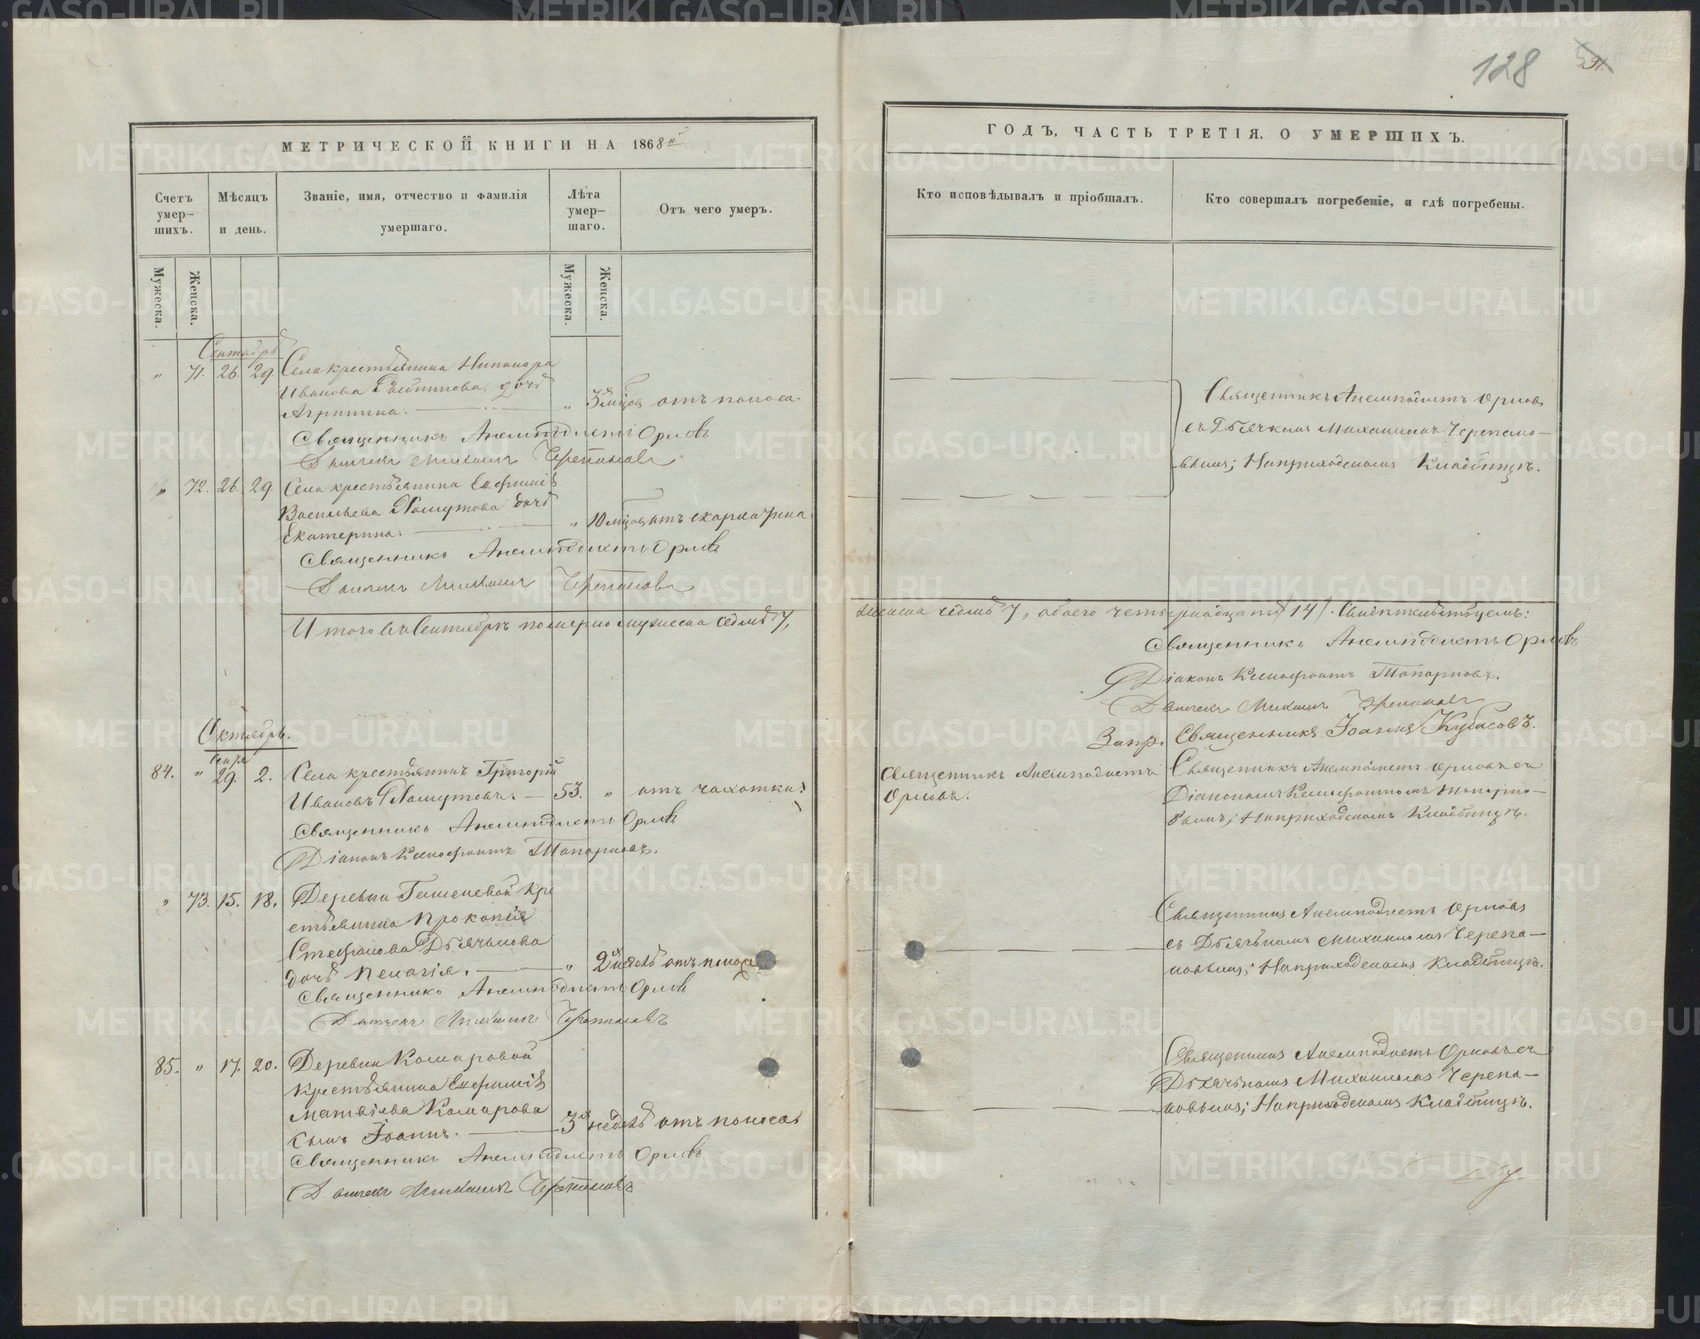 128
МЕТРИЧЕСКОЙ КНИГИ НА 1868й
Счетъ умер-шихъ.
Мѣсяцъ и день.
Званіе, имя, отчество и фамилія умершаго.
Лѣта умер-шаго.
Отъ чего умеръ.
Мужеска.
Женска.
Мужеска.
Женска.
Сентябрь
" 71. 26 29 Села крестьянина Никанора
Иванова дочь
Агрипина. " 3 мѣсяц. отъ поноса.
Священникъ Анемподистъ Орловъ
Дьячекъ Михаилъ Черепановъ
" 72. 26. 29. Села крестьянина Евфимія
Васильева Хомутова дочь
Екатерина. " 10 мѣсяц. отъ скарлатины
Священникъ Анемподистъ Орловъ
Дьячекъ Михаилъ Черепановъ
Итого въ Сентябрѣ померло мужеска седмь 7,
Октябрь.
Сентяб.
84. " 29. 2. Села крестьянинъ Григорій
Ивановъ Хомутовъ. 53. " отъ чахотки.
Священникъ Анемподистъ Орловъ
Діаконъ Ксенофонтъ Топорковъ.
" 73. 15. 18. Деревни Гашеневой кре
стьянина Прокопія
Стефанова Дьячкова
дочь Пелагія. " 2 недѣль отъ поноса
Священникъ Анемподистъ Орловъ
Дьячекъ Михаилъ Черепановъ
85. " 17. 20. Деревни Комаровой
крестьянина Евфимія
Матвѣева Комарова
сынъ Іоаннъ. 3 недѣль отъ поноса
Священникъ Анемподистъ Орловъ
Дьячекъ Михаилъ Черепановъ
ГОДЪ, ЧАСТЬ ТРЕТІЯ, О УМЕРШИХЪ.
Кто исповѣдывалъ и пріобщалъ.
Кто совершалъ погребеніе, и гдѣ погребены.
Священникъ Анемподистъ Орловъ
съ Дьячкомъ Михаиломъ Черепано-
вымъ; На приходскомъ Кладбищѣ.
женска седмь 7, обоего четырнадцать 14. Свидѣтельствуемъ:
Священникъ Анемподистъ Орловъ
Діаконъ Ксенофонтъ Топорковъ.
Дьячекъ Михаилъ Черепановъ
Запр. Священникъ Іоаннъ Кубасовъ.
Священникъ Анемподистъ
Орловъ.
Священникъ Анемподистъ Орловъ съ
Діакономъ Ксенофонтомъ Топорко-
вымъ; На приходскомъ Кладбищѣ.
Священникъ Анемподистъ Орловъ
съ Дьячкомъ Михаиломъ Черепа-
новымъ; На приходскомъ Кладбищѣ.
Священникъ Анемподистъ Орловъ съ
Дьячкомъ Михаиломъ Черепа-
новымъ; На приходскомъ Кладбищѣ.
METRIKI.GASO-URAL.RU